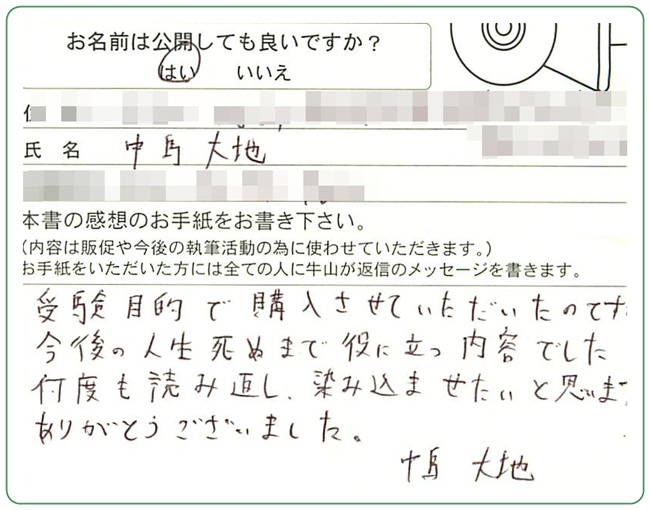 お名前は公開しても良いですか?
はい いいえ
氏 名 中馬 大地
本書の感想のお手紙をお書き下さい。
(内容は販促や今後の執筆活動の為に使わせていただきます。)
お手紙をいただいた方には全ての人に牛山が返信のメッセージを書きます。
受験目的で購入させていただいたのです
今後の人生死ぬまで役に立つ内容でした
何度も読み直し、染み込ませたいと思いま
ありがとうございました。
中馬 大地